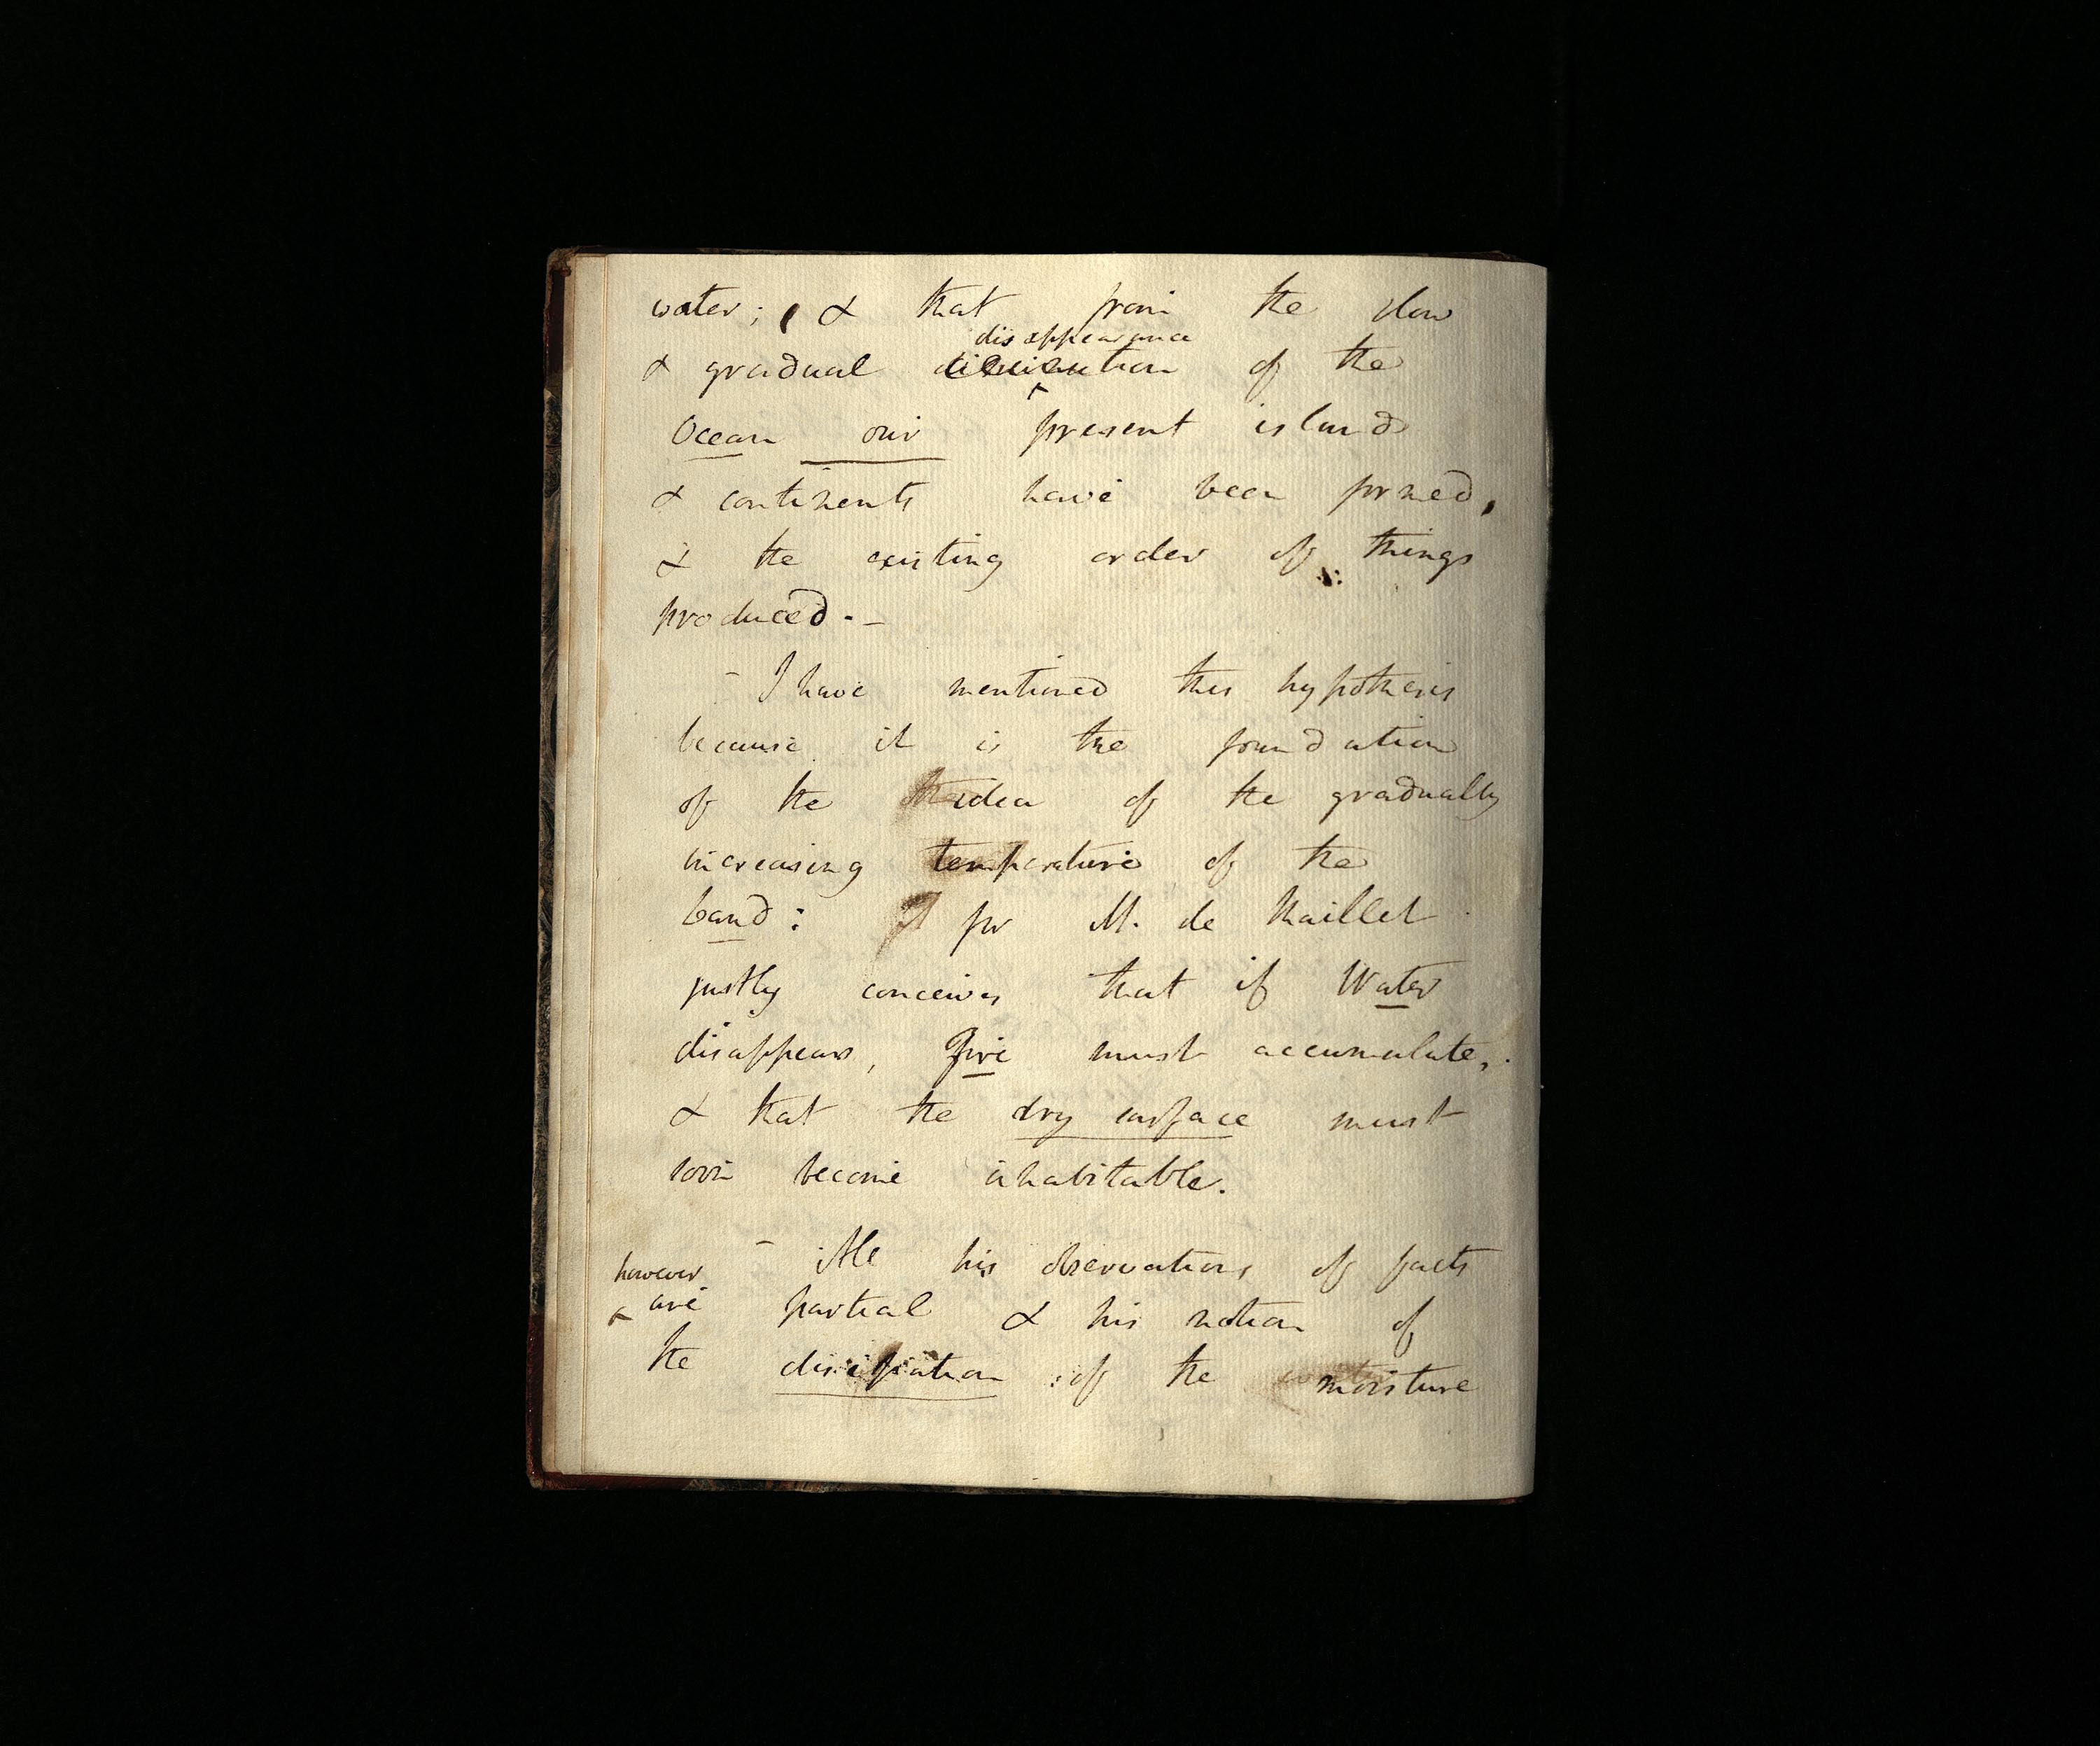 water; & that from the slow
disappearance
& gradual diminution of the
Ocean our present islands
& continents have been formed,
& the existing order of things
produced. –
– I have mentioned this hypothesis
because it is the foundation
of the idea of the gradually
increasing temperature of the
land: for M. de Maillet
justly conceives that if Water
disappears, Fire must accumulate,
& that the dry surface must
soon become inhabitable.
– All his observations of facts
however
are partial & his notion of
the dissipation of the moisture